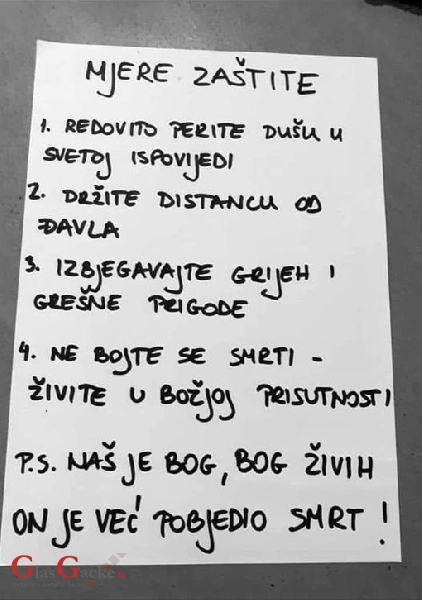 MJERE ZAŠTITE
1. REDOVITO PERITE DUŠU U
SVETOJ ISPOVIJEDI
2. DRŽITE DISTANCU OD
ĐAVLA
3. IZBJEGAVAJTE GRIJEH I
GREŠNE PRIGODE
4. NE BOJTE SE SMRTI -
ŽIVITE U BOŽJOJ PRISUTNOSTI
P.S. NAŠ JE BOG, BOG ŽIVIH
ON JE VEĆ POBJEDIO SMRT!
GlasGacke